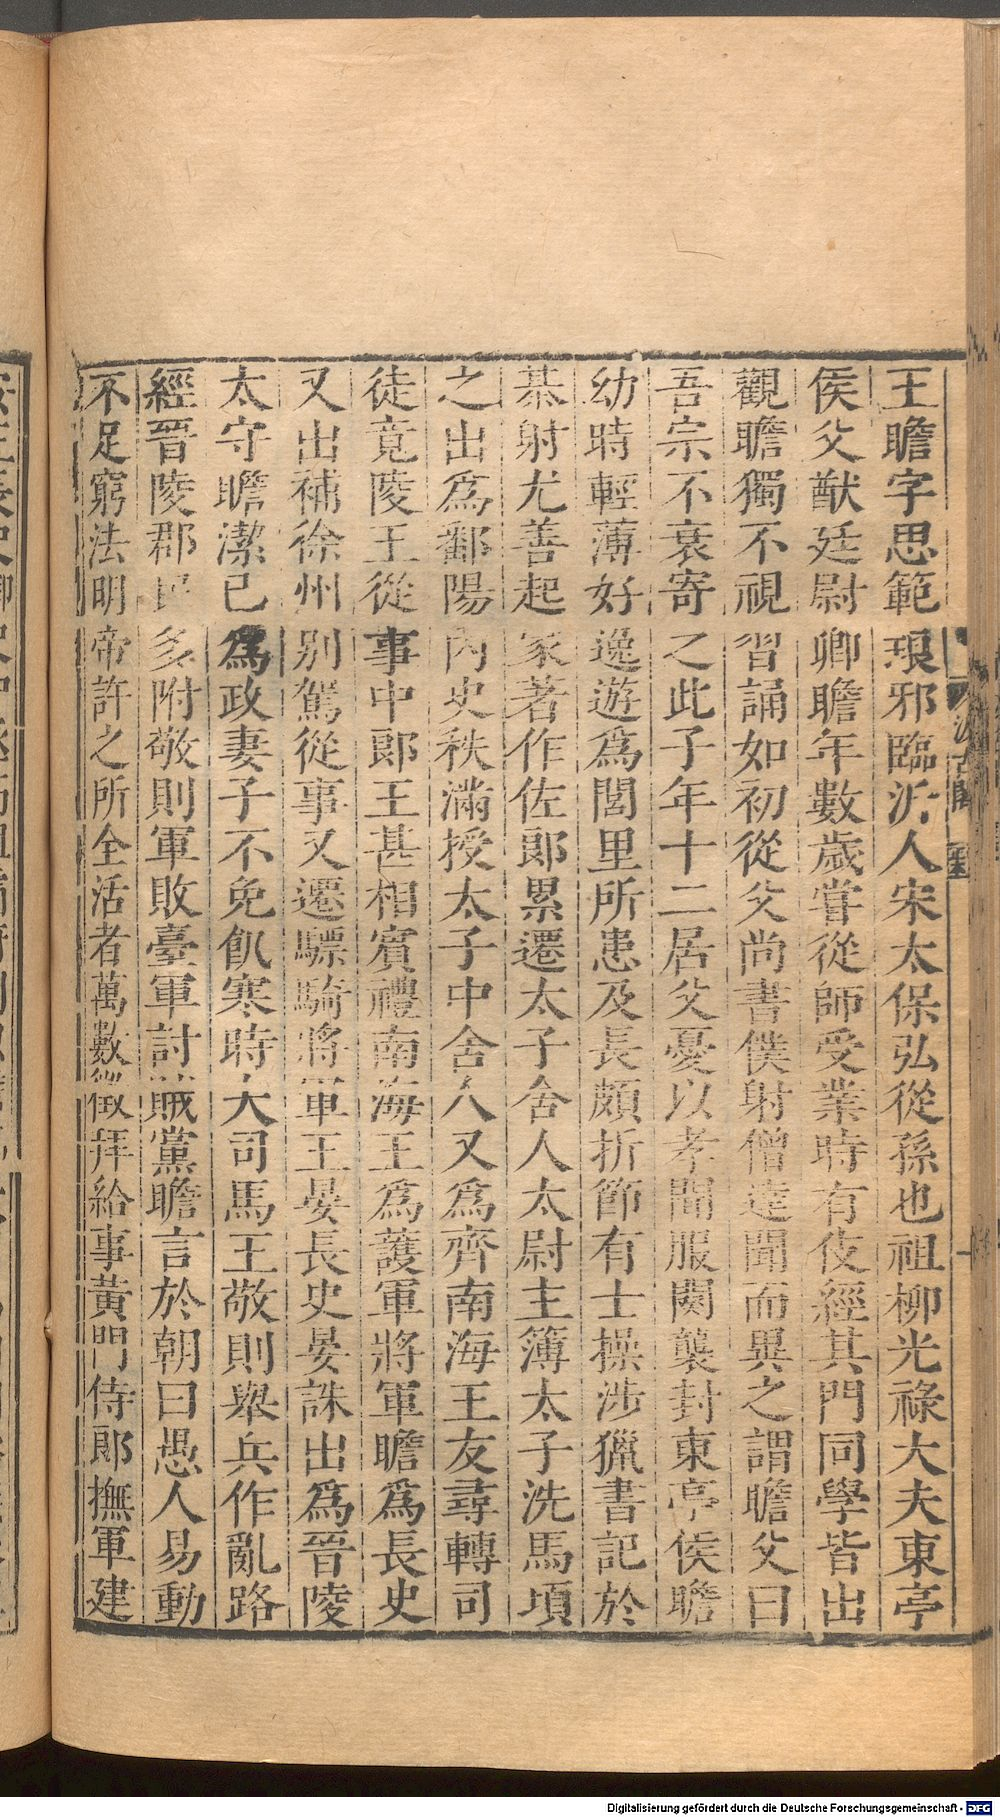 王瞻字思範琅邪臨沂人宋太保弘從孫也祖柳光祿大夫東亭
侯父猷廷尉卿瞻年數歲嘗從師受業時有伎經其門同學皆出
觀瞻獨不視習誦如初從父尚書僕射僧達聞而異之謂瞻父曰
吾宗不衰寄之此子年十二居父憂以孝聞服闋襲封東亭侯瞻
幼時輕薄好逸遊爲閭里所患及長頗折節有士操涉獵書記於
棊射尤善起家著作佐郎累遷太子舍人太尉主簿太子洗馬頃
之出爲鄱陽內史秩滿授太子中舍人又爲齊南海王友尋轉司
徒竟陵王從事中郎王甚相賓禮南海王爲護軍將軍瞻爲長史
又出補徐州別駕從事又遷驃騎將軍王晏長史晏誅出爲晉陵
太守瞻潔已爲政妻子不免飢寒時大司馬王敬則舉兵作亂路
經晉陵郡民多附敬則軍敗臺軍討賊黨瞻言於朝曰愚人易動
不足窮法明帝許之所全活者萬數徵拜給事黃門侍郎撫軍建
Digitalisierung gefördert durch die Deutsche Forschungsgemeinschaft - DFG